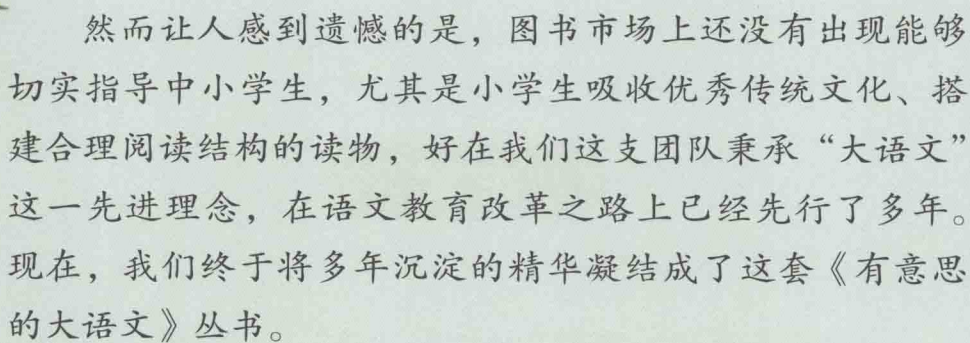 然而让人感到遗憾的是，图书市场上还没有出现能够
切实指导中小学生，尤其是小学生吸收优秀传统文化、搭
建合理阅读结构的读物，好在我们这支团队秉承“大语文”
这一先进理念，在语文教育改革之路上已经先行了多年。
现在，我们终于将多年沉淀的精华凝结成了这套《有意思
的大语文》丛书。